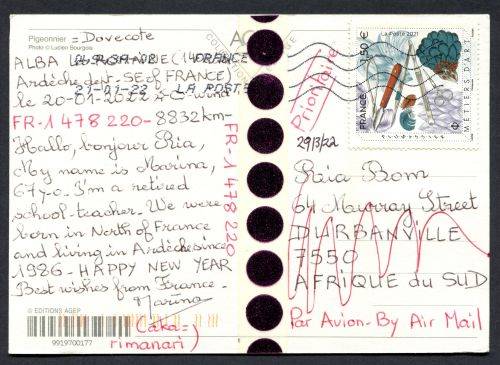 Pigeonnier = Dovecote
Photo © Lucien Bourgois
ALBA LA ROMAINE (FRANCE
Ardèche dept - SE of FRANCE)
21-01-22 LA POSTE
le 20-01-2022 4°C wind
FR-1 478 220 - 8832 km -
Hallo, bonjour Ria,
My name is Marina,
67 y.o. I'm a retired
school-teacher. We were
born in North of France
and living in Ardèche since
1986 - HAPPY NEW YEAR
Best wishes from France -
Marina
(aka =)
rimanari
© EDITIONS AGEP
9919700177
FR-1 478 220
Prioritaire
1,50 €
La Poste 2021
FRANCE
MÉTIERS D'ART
29/3/22
Ria Bom
64 Murray Street
DURBANVILLE
7550
AFRIQUE du SUD
Par Avion - By Air Mail